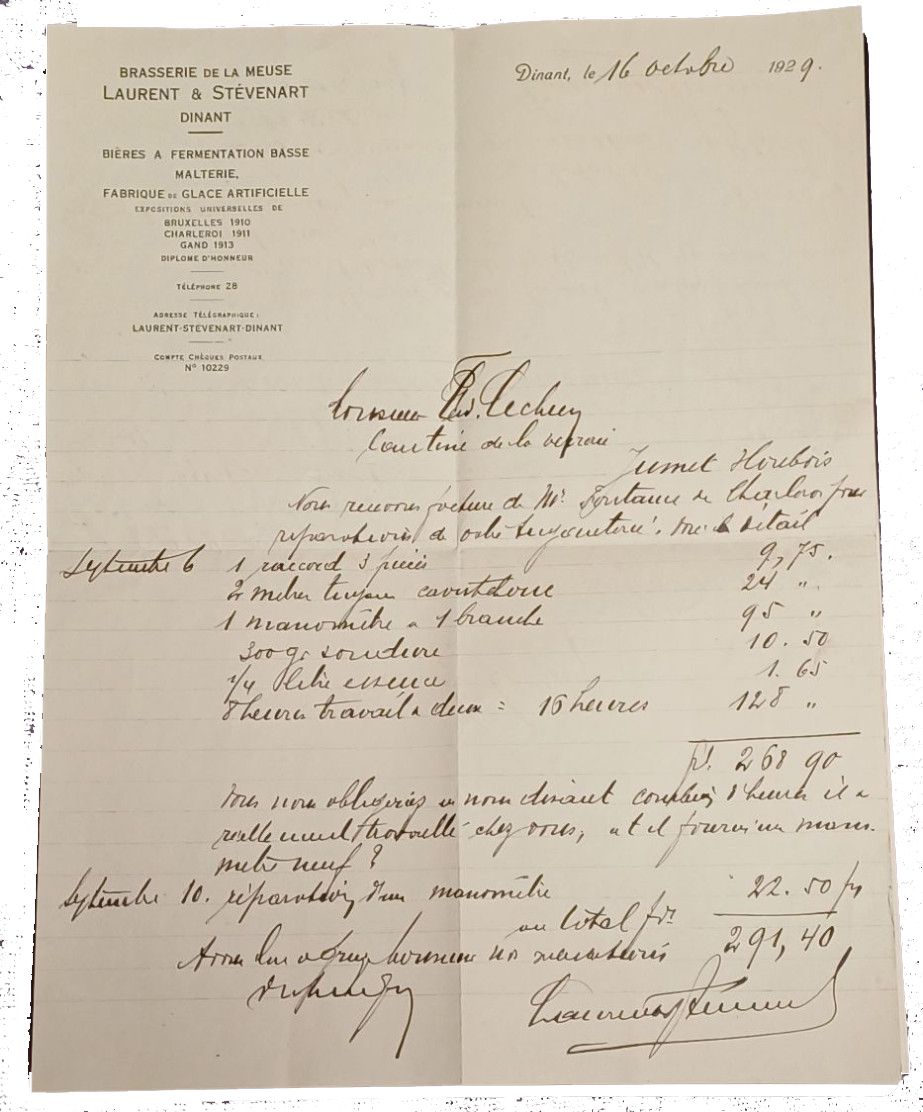 BRASSERIE DE LA MEUSE
LAURENT & STÉVENART
DINANT
BIÈRES A FERMENTATION BASSE
MALTERIE,
FABRIQUE DE GLACE ARTIFICIELLE
EXPOSITIONS UNIVERSELLES DE
BRUXELLES 1910
CHARLEROI 1911
GAND 1913
DIPLOME D'HONNEUR
TÉLÉPHONE 28
ADRESSE TÉLÉGRAPHIQUE :
LAURENT-STÉVENART-DINANT
COMPTE CHÈQUES POSTAUX
N° 10229
Dinant, le 16 octobre 1929.
Monsieur
de la verrerie
Jumet Houbois
Nous recevons facture de Mr. Fontaine de Charleroi pour
réparations de votre tuyauterie. le détail
Septembre 6 1 raccord 3 pièces 9,75.
2 mètres tuyau caoutchouc 24 "
1 manomètre a 1 branche 95 "
300 gr soudure 10.50
1/4 litre essence 1.65
8 heures travail a deux = 16 heures 128 "
fr. 268 90
Vous nous obligeriez en nous disant combien d'heures il a
réellement travaillé chez vous, a t il fourni un mano-
mètre neuf ?
Septembre 10. réparation d'un manomètre 22.50 frs
au total frs 291,40
Monsieur nos salutations
Laurent Stévenart